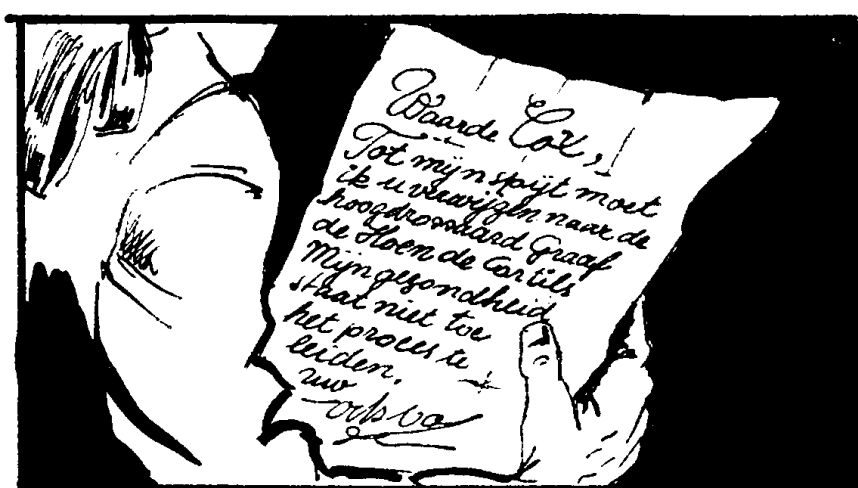 Waarde Cox,
Tot mijn spijt moet
ik u verwijzen naar de
hoogdrossaard Graaf
de Hoen de Cartils
Mijn gezondheid
staat niet toe
het proces te
leiden.
uw